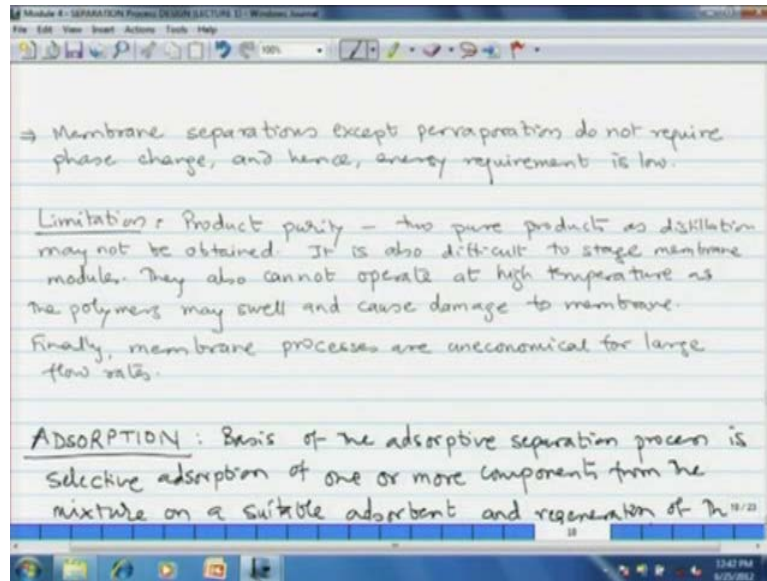 Module 4 - SEPARATION Process DESIGN (LECTURE 1) - Windows Journal
File Edit View Insert Actions Tools Help
100%
⇒ Membrane separations except pervaporation do not require
phase change, and hence, energy requirement is low.
Limitation: Product purity - two pure products as distillation
may not be obtained. It is also difficult to stage membrane
modules. They also cannot operate at high temperature as
the polymers may swell and cause damage to membrane.
Finally, membrane processes are uneconomical for large
flow rates.
ADSORPTION: Basis of the adsorptive separation process is
selective adsorption of one or more components from the
mixture on a suitable adsorbent and regeneration of th
18/23
18
12:42 PM
6/25/2012